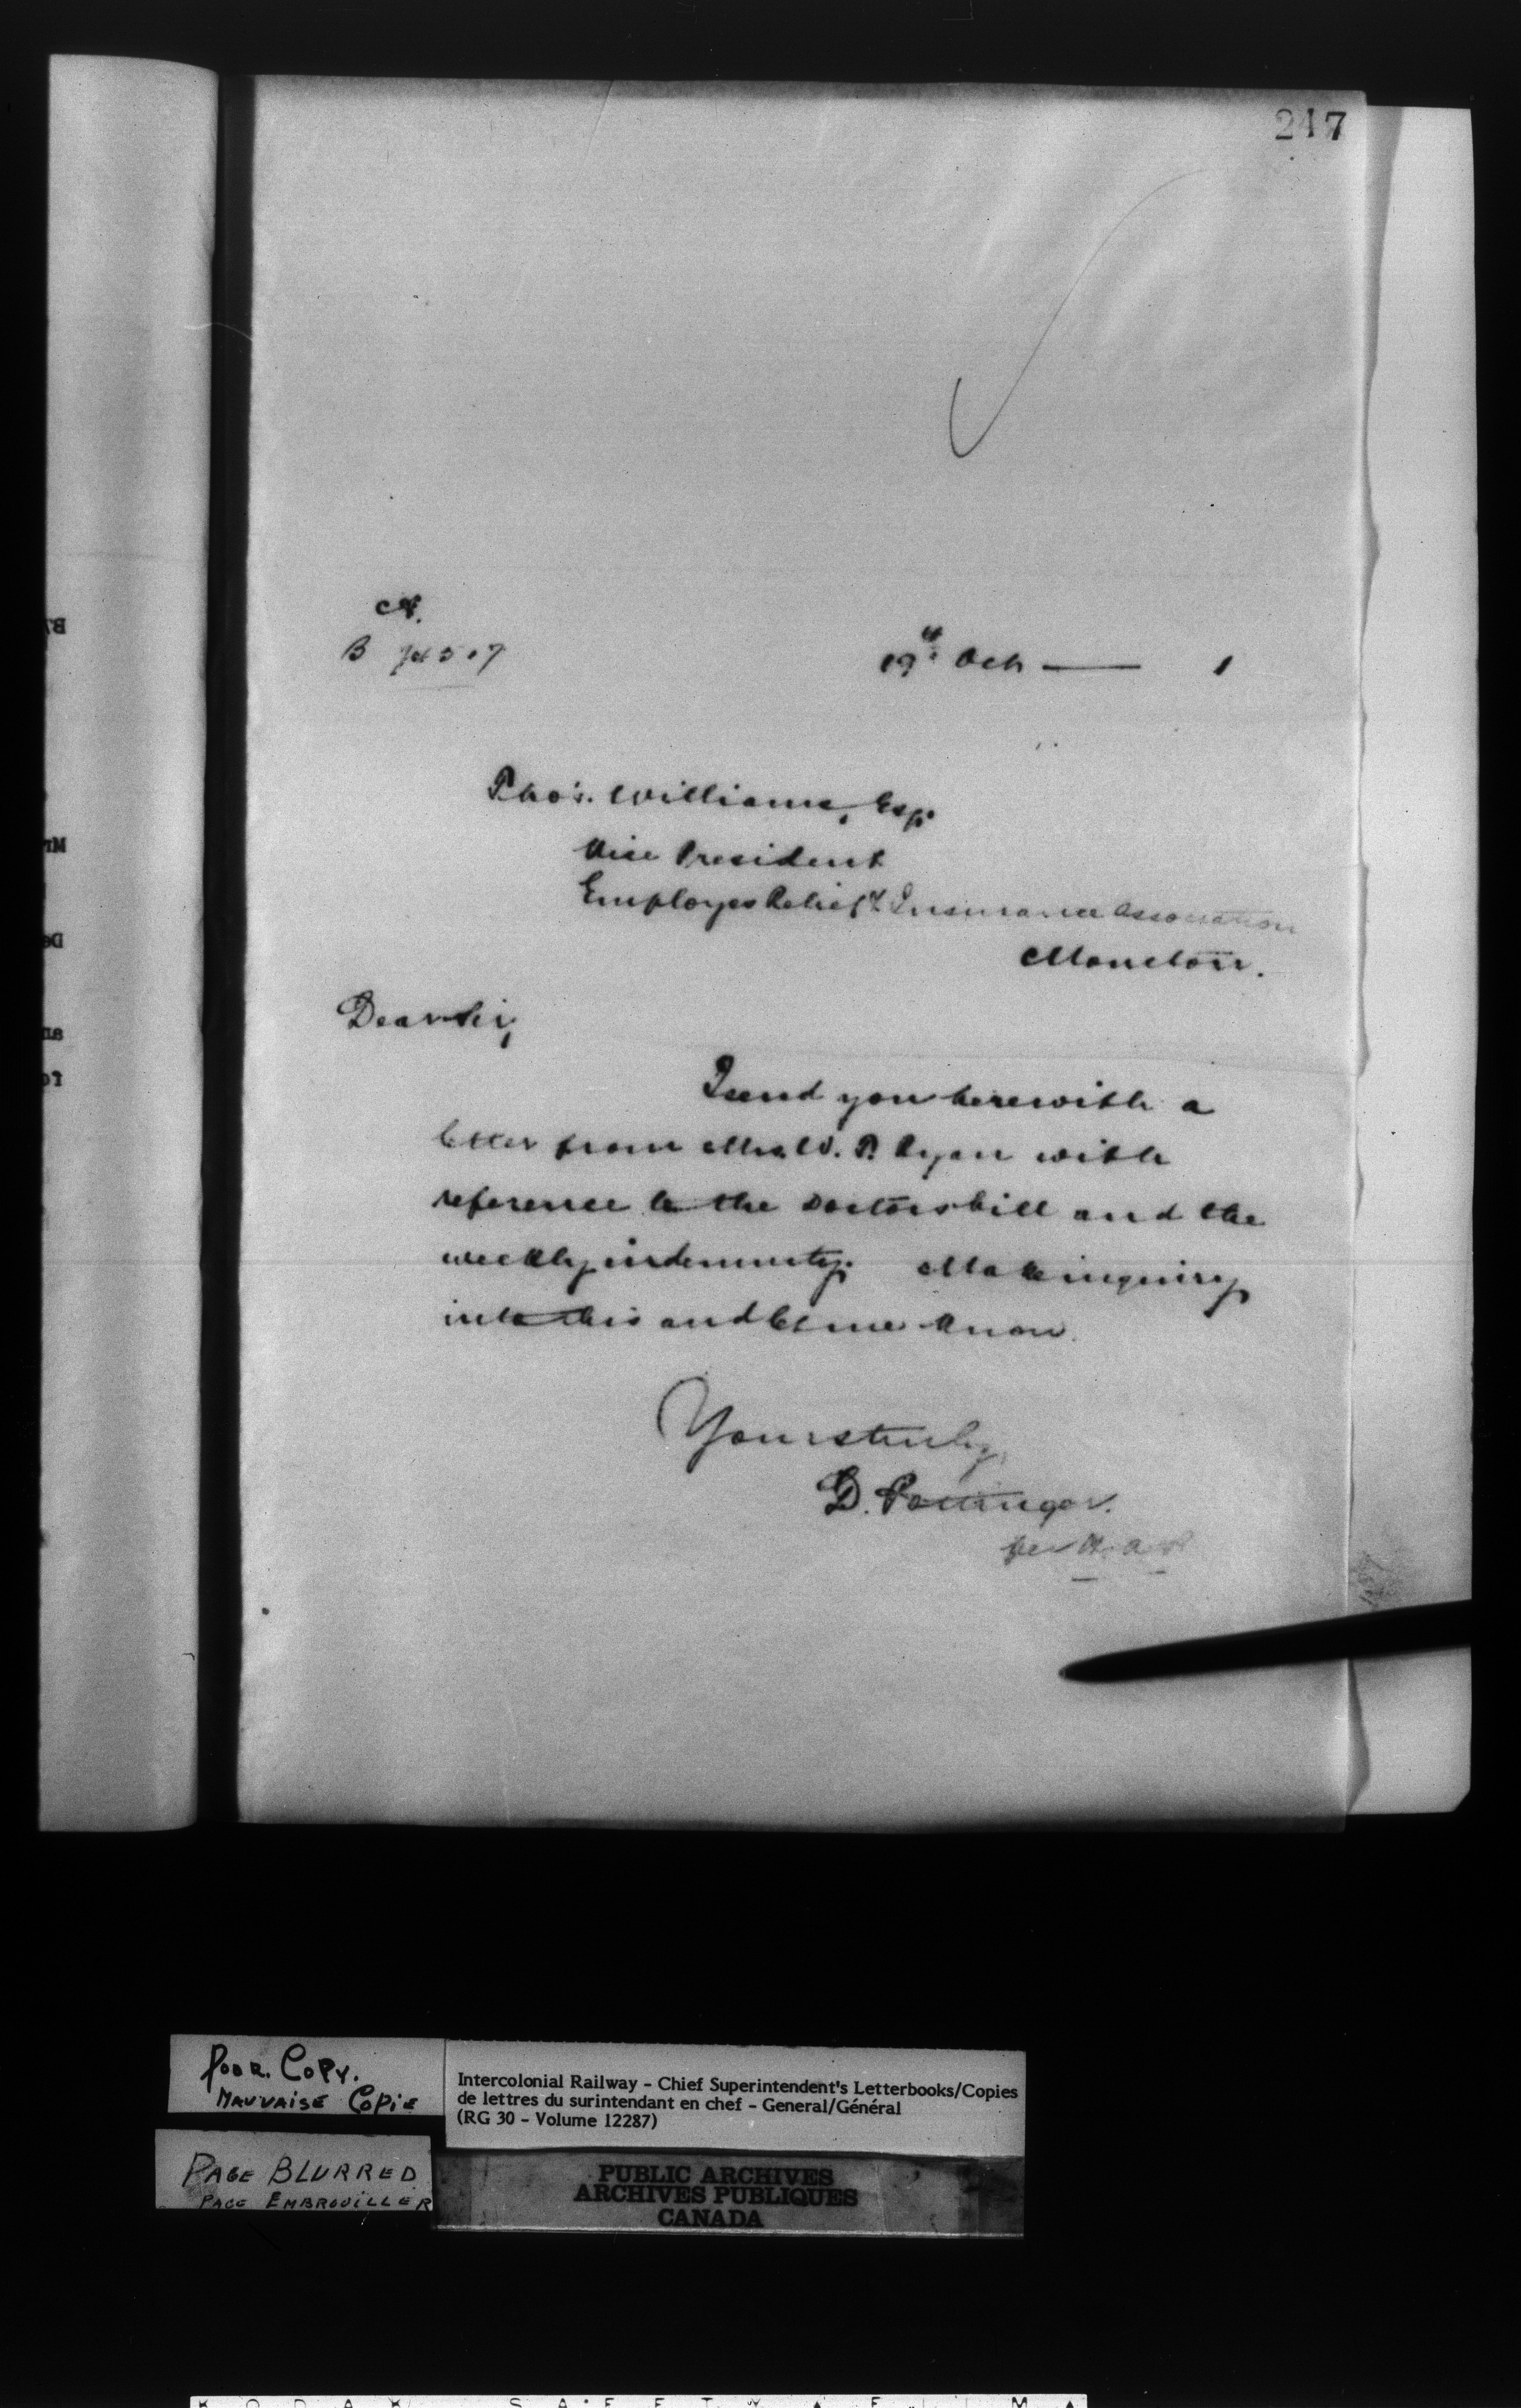 247
B
19th Oct — 1
Thos. Williams, Esq.
Vice President
Employes Relief & Insurance Association
Moncton.
Dear Sir,
I send you herewith a
letter from Mrs. W. P. Ryan with
reference to the Doctors bill and the
weekly indemnity. Make inquiry
into this and let me know.
Yours truly,
D. Pottinger.
per
POOR COPY.
MAUVAISE COPIE
Intercolonial Railway - Chief Superintendent's Letterbooks/Copies
de lettres du surintendant en chef - General/Général
(RG 30 - Volume 12287)
PAGE BLURRED
PAGE EMBROUILLER
PUBLIC ARCHIVES
ARCHIVES PUBLIQUES
CANADA